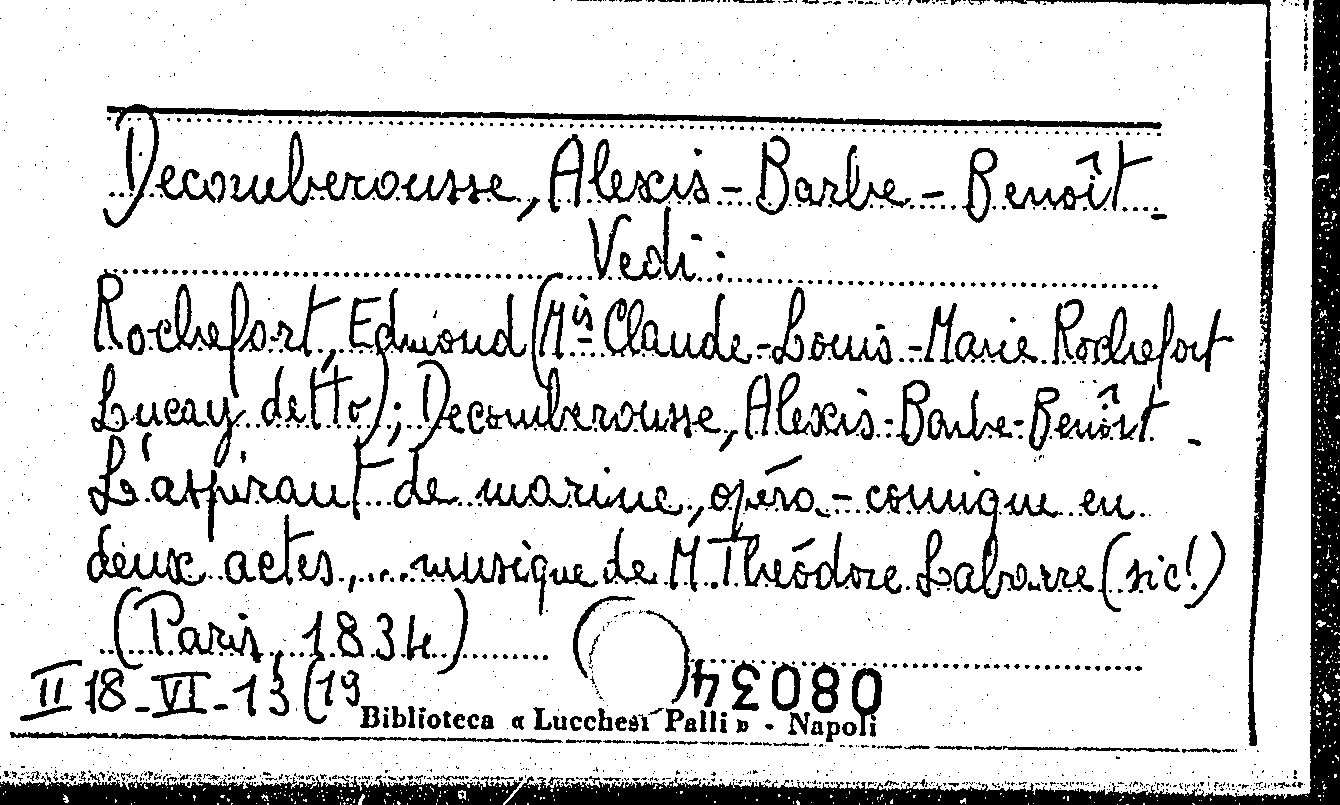 Decomberousse, Alexis-Barbe-Benoît
Vedi:
Rochefort, Edmond (Mis Claude-Louis-Marie Rochefort
Lucay detto); Decomberousse, Alexis-Barbe-Benoît -
L'aspirant de marine, opéra-comique en
deux actes,... musique de M. Théodore Labarre (sic!)
(Paris, 1834)
II 18-VI-13(19
08034
Biblioteca « Lucchesi Palli » - Napoli